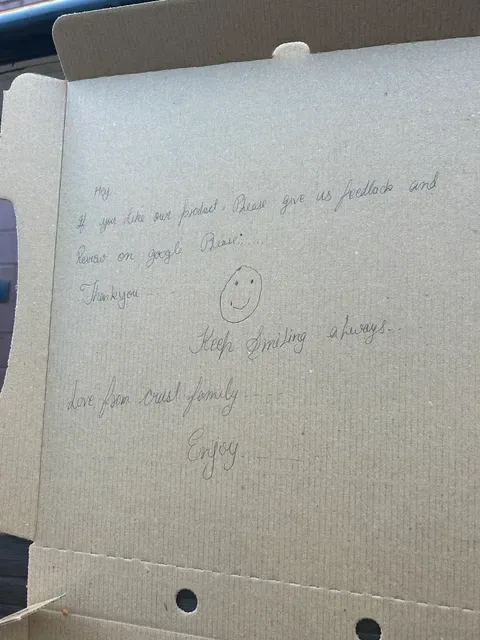 Hey
If you like our product, Please give us feedback and
Review on google Please....
Thankyou....
Keep Smiling always...
Love from crust family....
Enjoy......